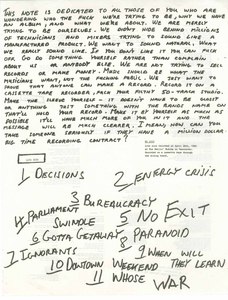 THIS NOTE IS DEDICATED TO ALL THOSE OF YOU WHO ARE
WONDERING WHO THE FUCK WE'RE TRYING TO BE, WHY WE HAVE
AN ALBUM, AND WHAT WE'RE ABOUT. WE ARE MERELY
TRYING TO BE OURSELVES! WE DON'T HIDE BEHIND MILLIONS
OF TECHNICIANS AND MIXERS TRYING TO SOUND LIKE A
MANUFACTURED PRODUCT. WE WANT TO SOUND NATURAL, WHAT
WE REALLY SOUND LIKE. IF YOU DON'T LIKE IT YOU CAN PISS
OFF. GO DO SOMETHING YOURSELF RATHER THAN COMPLAIN
ABOUT US OR ANYBODY ELSE. WE ARE NOT TRYING TO SELL
RECORDS OR MAKE MONEY. MUSIC SHOULD BE WHAT THE
MUSICIANS WANT, NOT THE FUCKING PUBLIC. WE JUST WANT TO
PROVE THAT ANYONE CAN MAKE A RECORD. RECORD IT ON A
CASSETTE TAPE RECORDER,
MAKE THE SLEEVE YOURSELF - IT DOESN'T HAVE TO BE GLOSSY
OR ANYTHING JUST SOMETHING WITH THE BANDS NAME ON
THAT'LL HOLD YOUR RECORD. MAKE IT BY YOURSELF AS MUCH AS
POSSIBLE IT'LL HAVE MUCH MORE OF YOU IN IT AND THE
MESSAGE WILL BE MUCH CLEARER, I MEAN, HOW CAN YOU
TAKE SOMEONE SERIOUSLY IF THEY HAVE A MILLION DOLLAR
BIG TIME RECORDING CONTRACT?
1 DECISIONS
2 ENERGY CRISIS
3 BUREAUCRACY
4 PARLIAMENT SWINDLE
5 NO EXIT
6 GOTTA GETAWAY
8 PARANOID
7 IGNORANTS
9 WHEN WILL THEY LEARN
10 DOWTOWN WEEKEND
11 WHOSE WAR